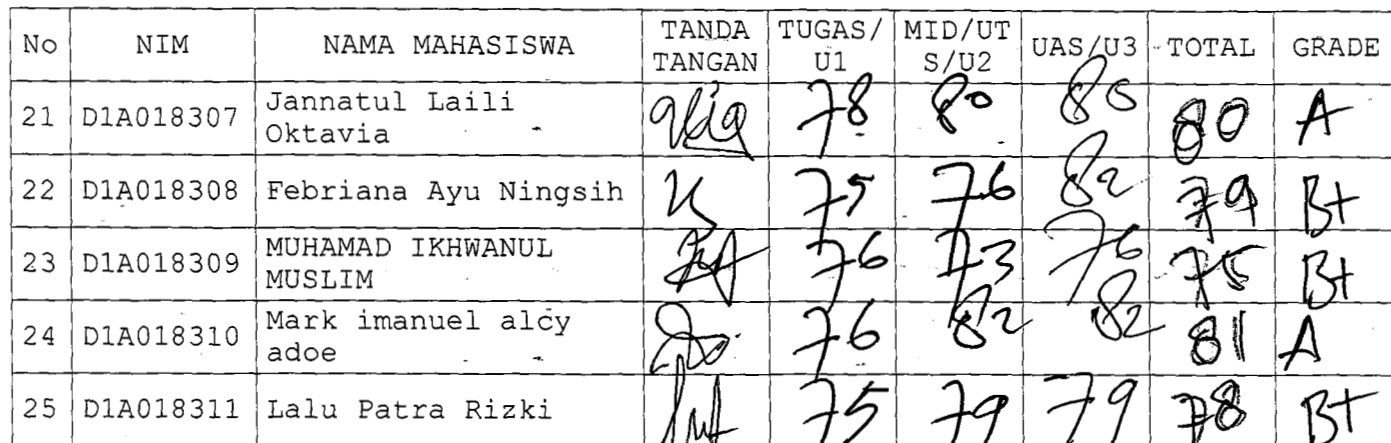 No NIM NAMA MAHASISWA TANDA TANGAN TUGAS/U1 MID/UTS/U2 UAS/U3 TOTAL GRADE
21 D1A018307 Jannatul Laili Oktavia 78 80 80 80 A
22 D1A018308 Febriana Ayu Ningsih 75 76 82 79 B+
23 D1A018309 MUHAMAD IKHWANUL MUSLIM 76 73 76 75 B+
24 D1A018310 Mark imanuel alcy adoe 76 82 82 81 A
25 D1A018311 Lalu Patra Rizki 75 79 79 78 B+